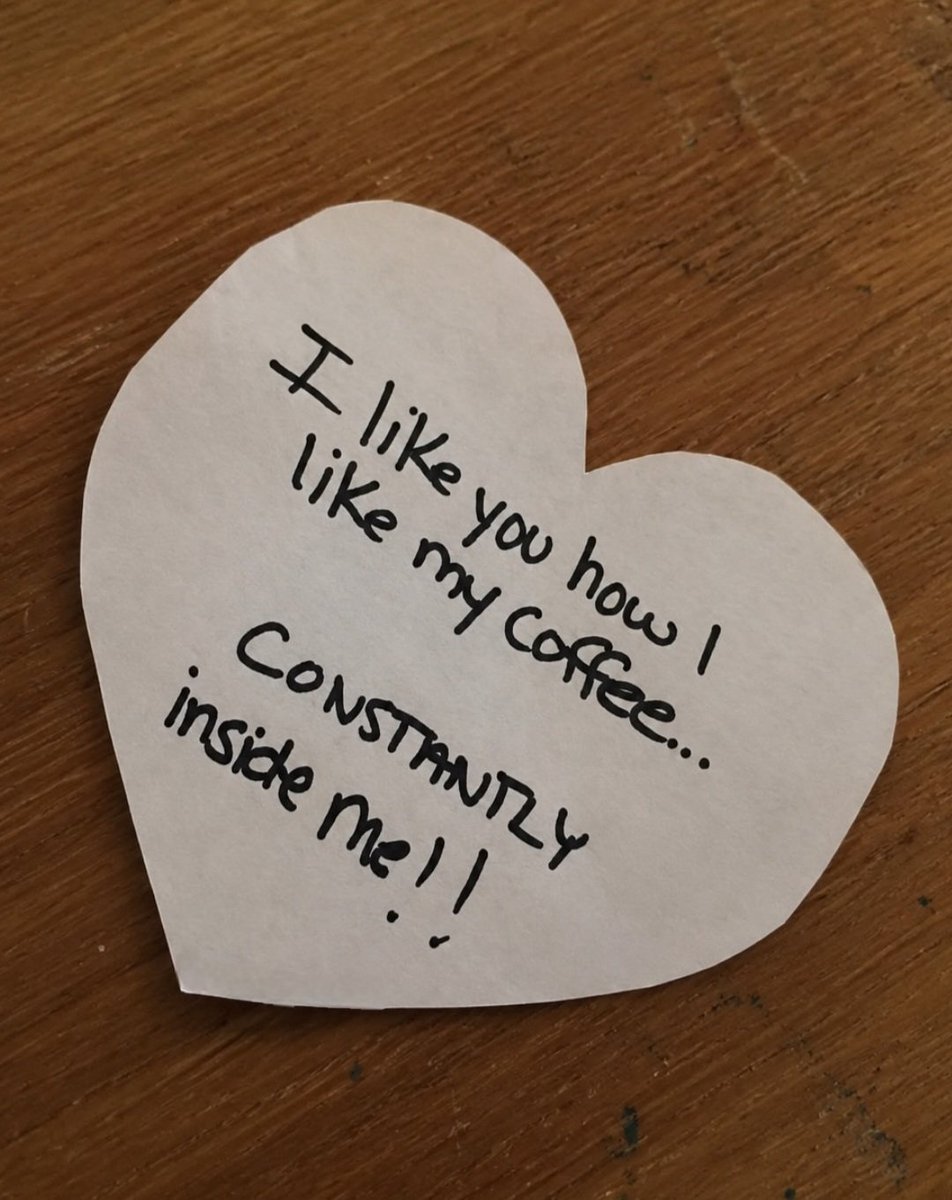 I like you how I
like my coffee...
CONSTANTLY
inside me!!